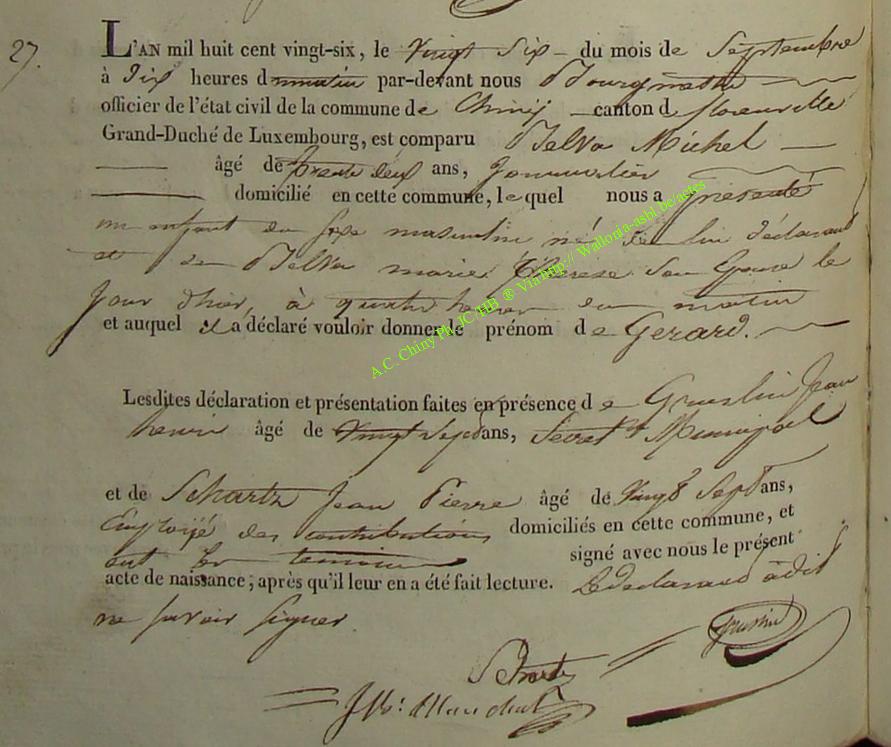 27.
L'AN mil huit cent vingt-six, le Vingt Six du mois de Septembre
à Dix heures d matin par-devant nous Bourgmestre
officier de l'état civil de la commune de Chiny canton de florenville
Grand-Duché de Luxembourg, est comparu Delva Michel
âgé de trente deux ans, Journalier
domicilié en cette commune, lequel nous a présenté
un enfant du sexe masculin né de lui déclarant
et de Delva marie Therese Son Epouse le
jour d'hier, à quatre heures du matin
et auquel il a déclaré vouloir donner le prénom de Gerard.
A.C. Chiny Ph.JC HB ® Via http://Wallonia-asbl.be/actes
Lesdites déclaration et présentation faites en présence de Jean
henri âgé de Vingt Sept ans, Secret Municipal
et de Schartz Jean Pierre âgé de Vingt Sept ans,
Employé des contributions domiciliés en cette commune, et
ont les temoins signé avec nous le présent
acte de naissance, après qu'il leur en a été fait lecture. Le declarant a dit
ne savoir signer
Schartz